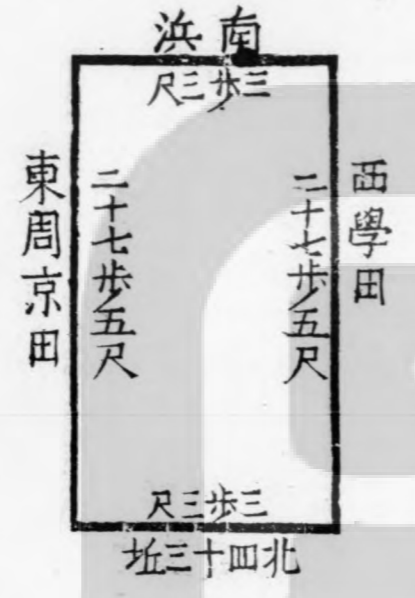 南浜
三步三尺
西學田
二十七步五尺
二十七步五尺
東周京田
三步三尺
北四十三坵